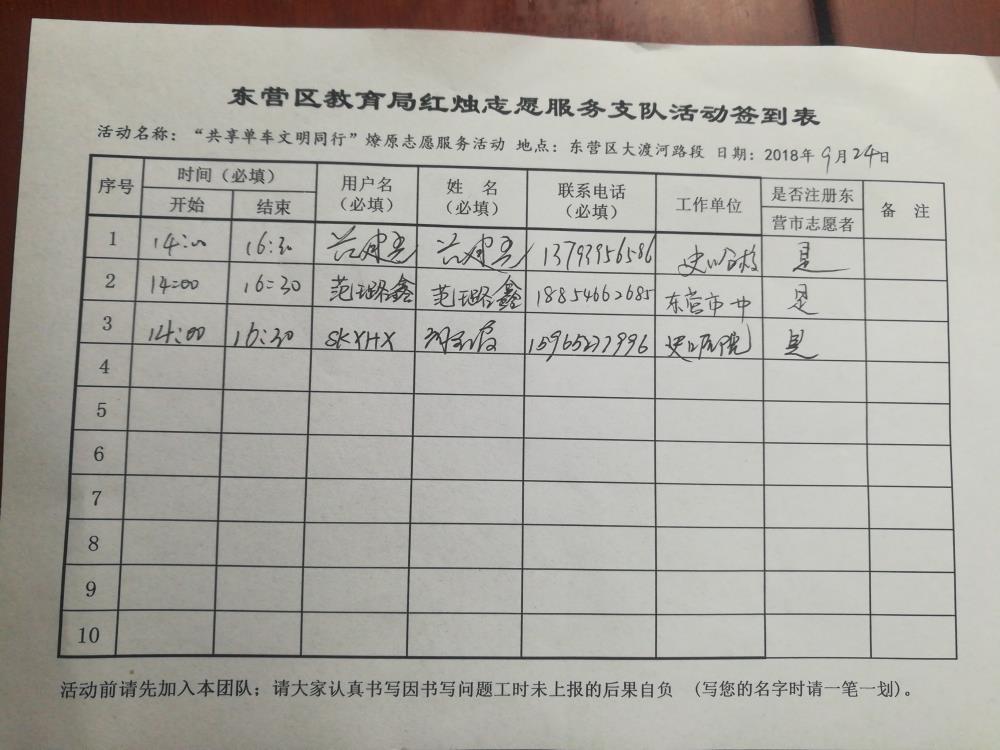 东营区教育局红烛志愿服务支队活动签到表
活动名称：“共享单车文明同行”燎原志愿服务活动 地点：东营区大渡河路段 日期：2018年9月24日
序号 时间（必填） 用户名（必填） 姓 名（必填） 联系电话（必填） 工作单位 是否注册东营市志愿者 备 注
开始 结束
1 14:00 16:30 13793956586 是
2 14:00 16:30 范璐鑫 范璐鑫 18854662685 东营市一中 是
3 14:00 16:30 SKYHX 15965277996 是
4
5
6
7
8
9
10
活动前请先加入本团队；请大家认真书写因书写问题工时未上报的后果自负 （写您的名字时请一笔一划）。